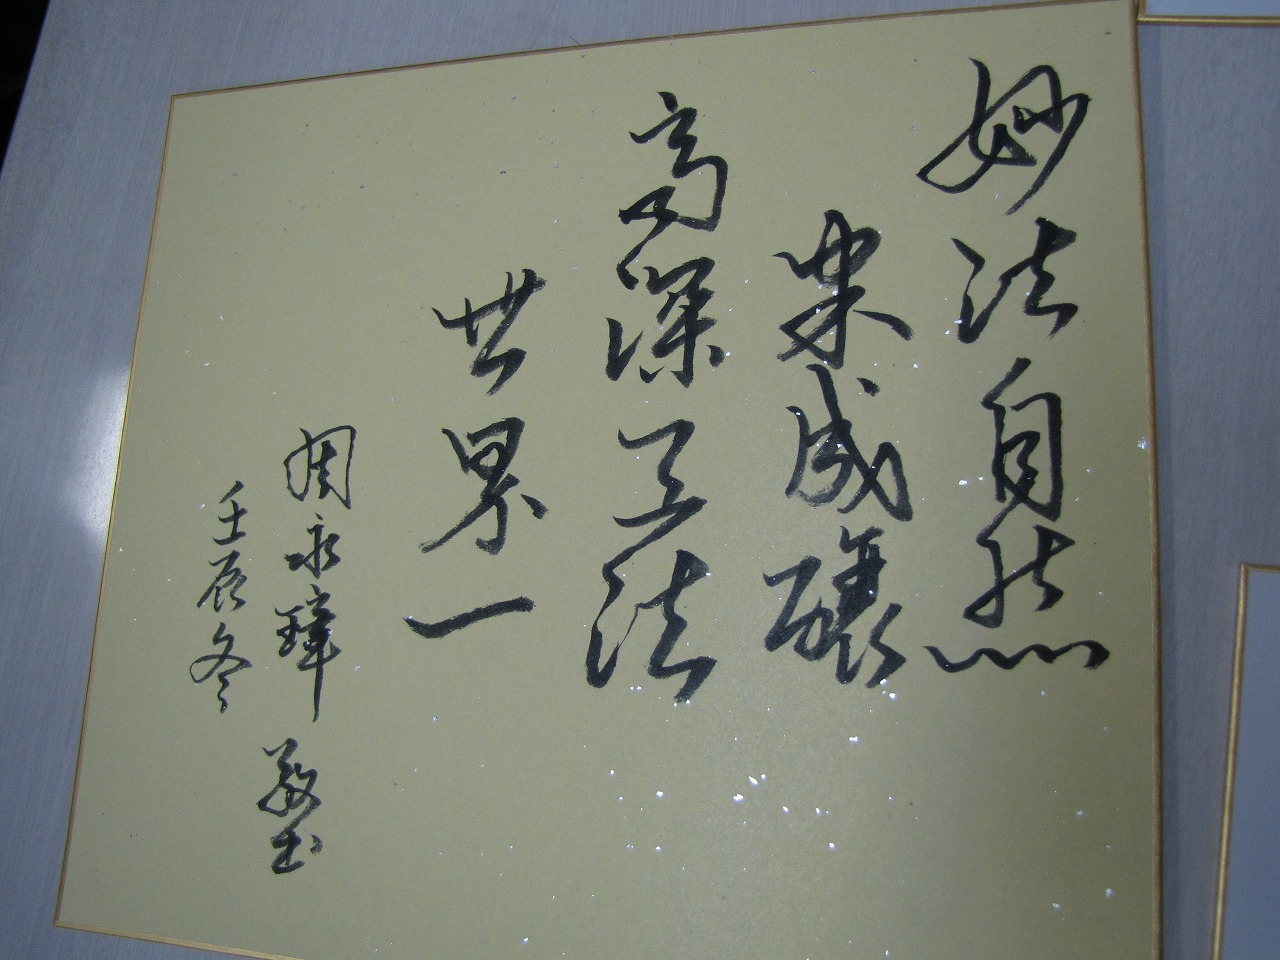 妙法自然
來成礁
高深工法
世界一
周永瑋 敬書
壬辰冬